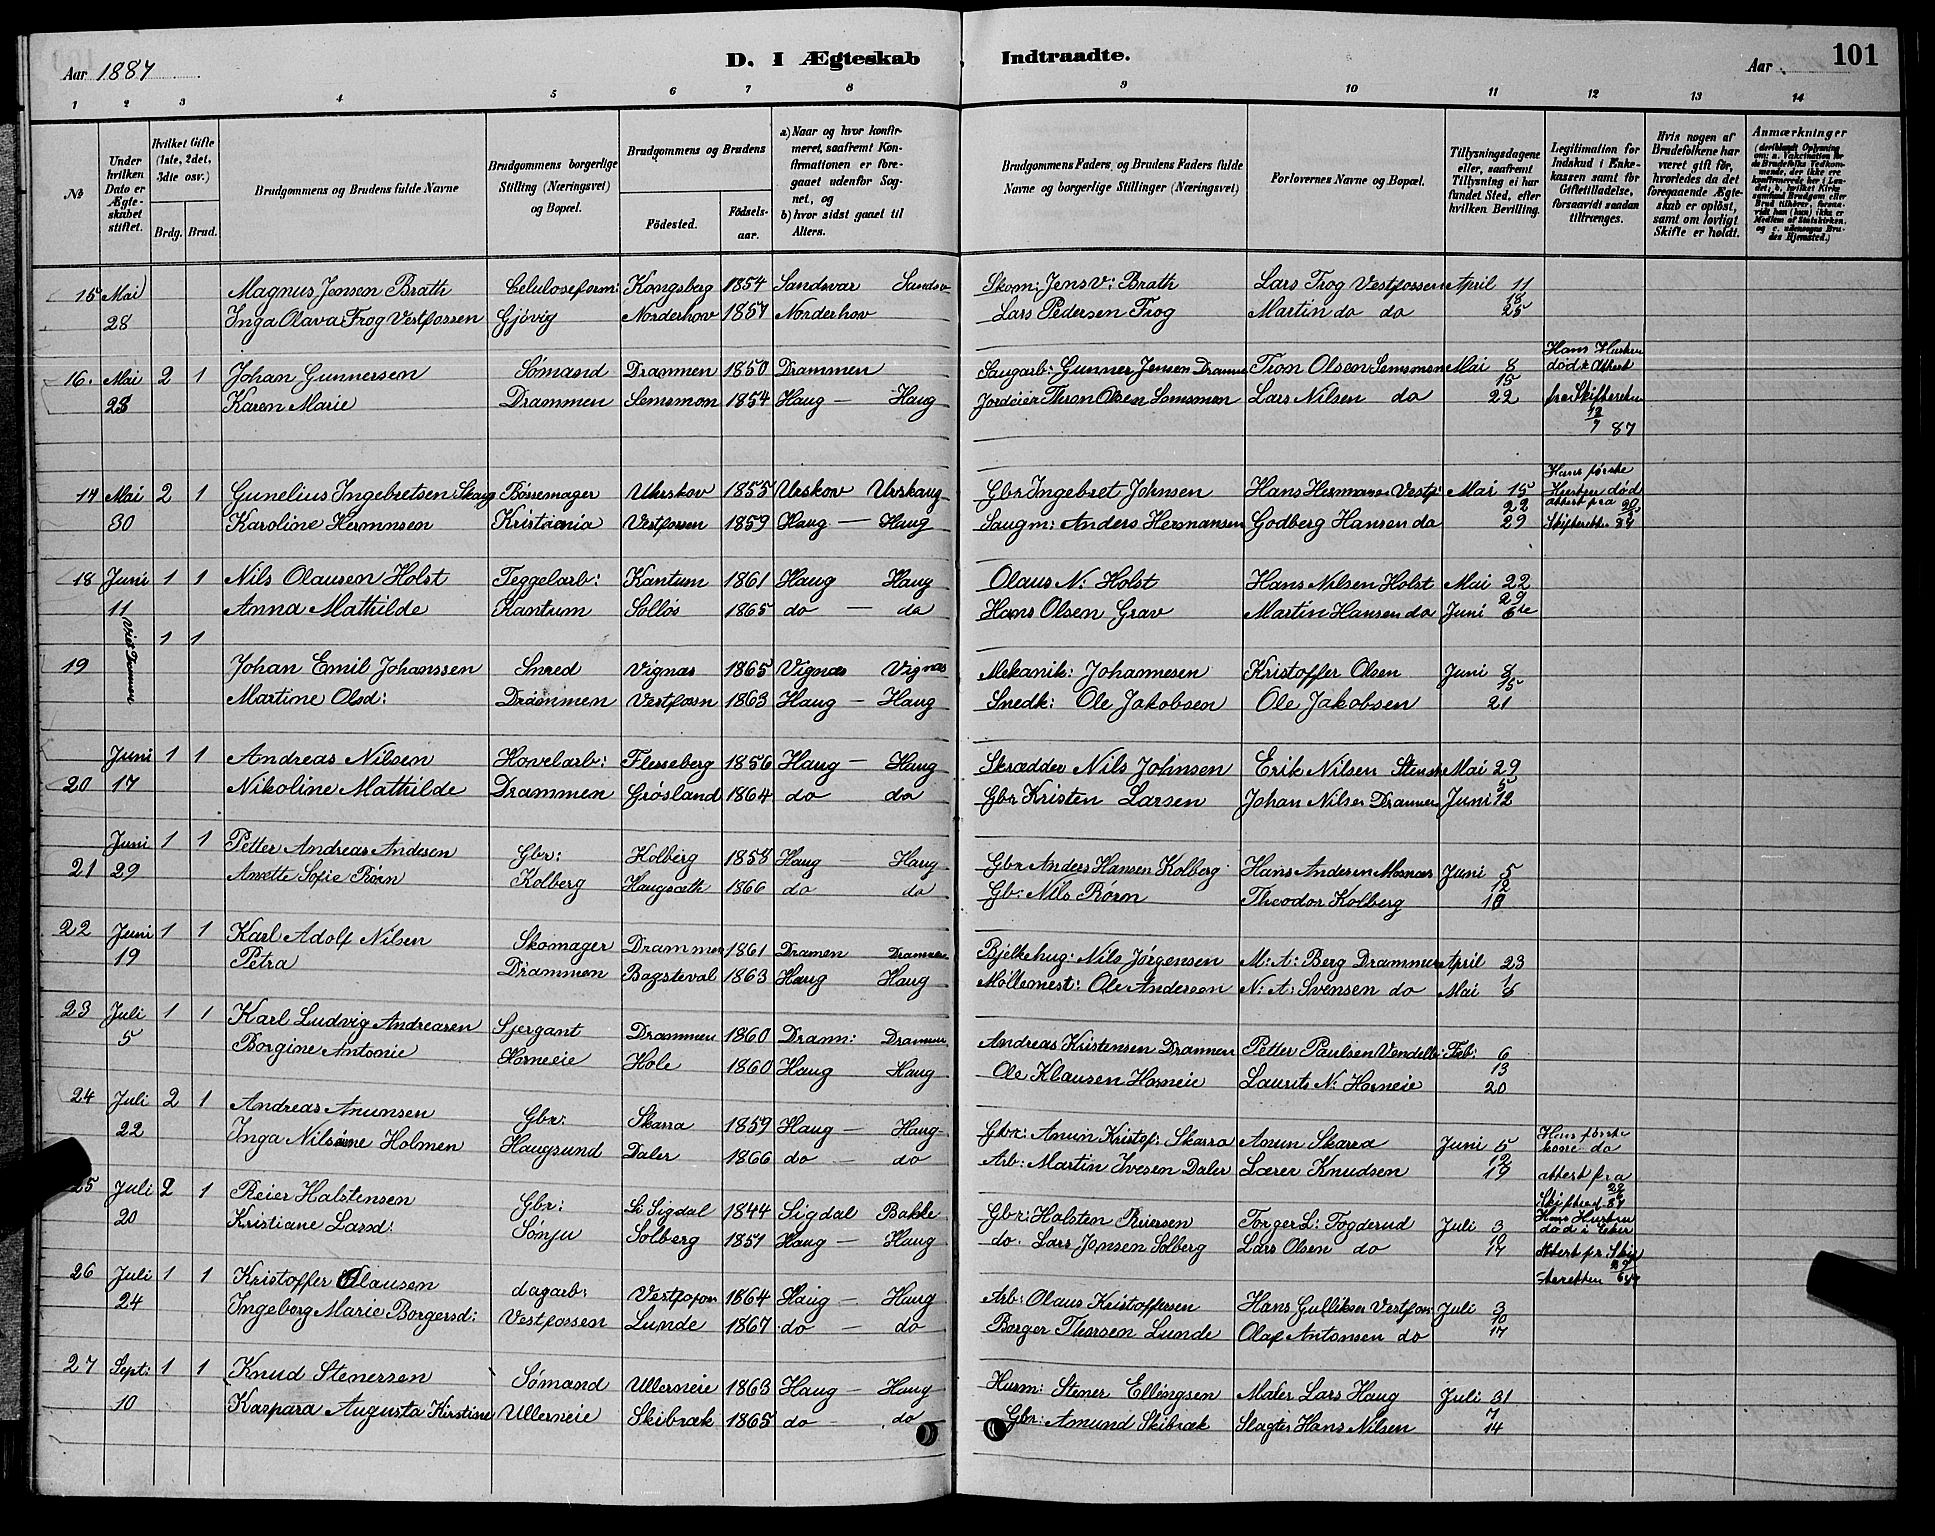 Aar 1887
D. I Ægteskab Indtraadte.
Aar
101
1 2 3 4 5 6 7 8 9 10 11 12 13 14
No
Under hvilken Dato er Ægteskabet stiftet.
Hvilket Gifte (1ste, 2det, 3die osv.)
Brdg. Brud.
Brudgommens og Brudens fulde Navne
Brudgommens borgerlige Stilling (Næringsvei) og Bopæl.
Brudgommens og Brudens
Födested. Födselsaar.
a) Naar og hvor konfirmeret, saafremt Konfirmationen er foregaaet udenfor Sognet, og
b) hvor sidst gaaet til Alters.
Brudgommens Faders og Brudens Faders fulde Navne og borgerlige Stillinger (Næringsvei)
Forlovernes Navne og Bopæl.
Tillysningsdagene eller, saafremt Tillysning ei har fundet Sted, efter hvilken Bevilling.
Legitimation for Indskud i Enkekassen samt for Giftetilladelse, forsaavidt saadan tiltrænges.
Hvis nogen af Brudefolkene har været gift før, hvorledes da det foregaaende Ægteskab er oplöst, samt om lovligt Skifte er holdt.
Anmærkninger
15 Mai Magnus Jensen Brath Celuloseform: Kongsberg 1854 Sandsvær Sandsv Skom: Jens V: Brath Lars Frog Vestfossen April 11
28 Inga Olava Frog Vestfossen Gjövig Norderhov 1857 Norderhov Lars Pedersen Frog Martin do do 18 25
16. Mai 2 1 Johan Gunnersen Sömand Drammen 1850 Drammen Saugarb: Gunner Jensen Dramme Tron Olsen Semsmon Mai 8 15 Hans Hustru död & Attest
28 Karen Marie Drammen Semsmon 1854 Haug — Haug Jordeier Thron Olsen Semsmon Lars Nilsen do 22 fra Skifteretten 12/7 87
17 Mai 2 1 Gunelius Ingebretsen Skaug Bössemager Uhrskov 1855 Urskov Urskaug Gbr Ingebret Johnsen Hans Hermanse Vestf: Mai 15 22 Hans første Hustru död attest fra
30 Karoline Hermnsen Kristiania Vestfossen 1859 Haug — Haug Saugm: Anders Hermansen Godberg Hansen do 29 Skifteretten
18 Juni 1 1 Nils Olausen Holst Teggelarb: Kantum 1861 Haug Haug Olaus N: Holst Hans Nilsen Holst Mai 22 29
11 Anna Mathilde Kantum Sollös 1865 do — do Hans Olsen Grav Martin Hansen do Juni 6te
1 1
19 Johan Emil Johanssen Smed Vignæs 1865 Vignæs Vignæs Mekanik: Johannesen Kristoffer Olsen Juni 8 15
Martine Olsd: Drammen Vestfossn 1863 Haug — Haug Snedk: Ole Jakobsen Ole Jakobsen 21
Juni 1 1 Andreas Nilsen Hovelarb: Flesseberg 1856 Haug — Haug Skrædder Nils Johnsen Erik Nilsen Mai 29 5
20 17 Nikoline Mathilde Drammen Grösland 1864 do do Gbr Kristen Larsen Johan Nilsen Drammen Juni 12
Juni 1 1 Petter Andreas Andesen Gbr: Kolberg 1858 Haug Haug Gbr Anders Hansen Kolberg Hans Andersen Juni 5 12
21 29 Anette Sofie Roen Kolberg Haugsæth 1866 do do Gb: Nils Roen Theodor Kolberg 19
22 Juni 1 1 Karl Adolf Nilsen Skomager Drammen 1861 Dramen Drammen Bjelkehug: Nils Jörgensen M: A: Berg Drammen April 23
19 Petra Drammen Bagsteval 1863 Haug Haug Möllemest: Ole Andersen N: A: Svensen do Mai 1 8
23 Juli 1 1 Karl Ludvig Andreasen Sjergant Drammen 1860 Dramn: Drammen Andreas Kristensen Drammen Petter Paulsen Vendelb: Feb: 6 13
5 Borgine Antonie Horneie Hole 1860 Haug Haug Ole Klausen Horneie Laurits N: Horneie 20
24 Juli 2 1 Andreas Anunsen Gbr: Skarra 1859 Haug — Haug Gbr: Anun Kristof: Skarra Anun Skarra Juni 5 12 Hans første kone do
22 Inga Nilsine Holmen Haugsund Daler 1866 do — do Arb: Martin Ivesen Daler Lærer Knudsen 19 attest fra Skifteret
25 Juli 2 1 Reier Halstensen Gbr: St Sigdal 1844 Sigdal Bakke Gbr: Holsten Reiersen Torger L: Fogderud Juli 3 10 Hans Hustru död i Eeker
20 Kristiane Larsd: Sønju Solberg 1851 Haug — Haug do. Lars Jonsen Solberg Lars Olsen do 17 Attest fr: Skifteretten
26 Juli 1 1 Kristoffer Olausen dagarb: Vestfossn 1864 Haug — Haug Arb: Olaus Kristoffersen Hans Gulliksen Vestfos: Juli 3 10
24 Ingeborg Marie Borgersd: Vestfossen Lunde 1867 do — do Borger Thorsen Lunde Olaf Antonsen do 17
27 Sept: 1 1 Knud Stenersen Sömand Ullerneie 1863 Haug — Haug Husm: Stener Ellingsen Maler Lars Haug Juli 31 7
10 Kaspara Augusta Kirstine Ullerneie Skibræk 1865 do do Gbr: Amund Skibræk Slagter Hans Nilsen 14